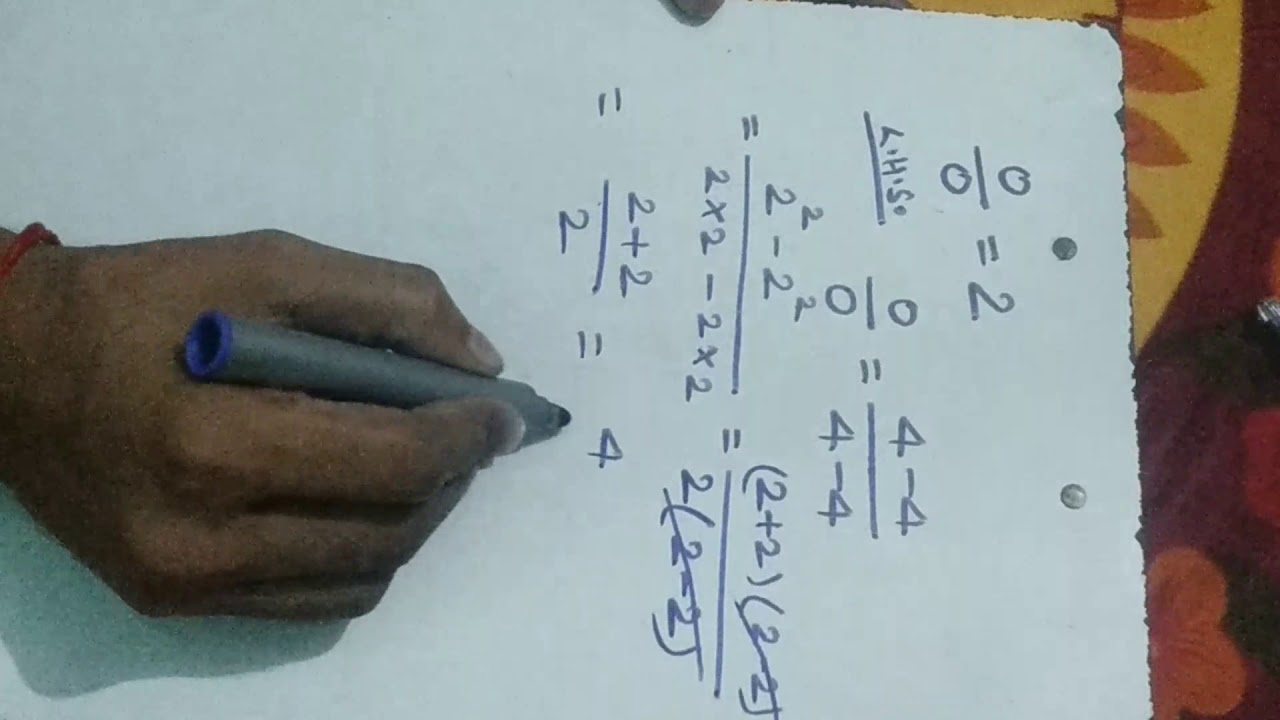 0/0 = 2
L.H.S. 0/0 = 4-4/4-4
= 2²-2²/2×2-2×2 = (2+2)(2-2)/2(2-2)
= 2+2/2 = 4